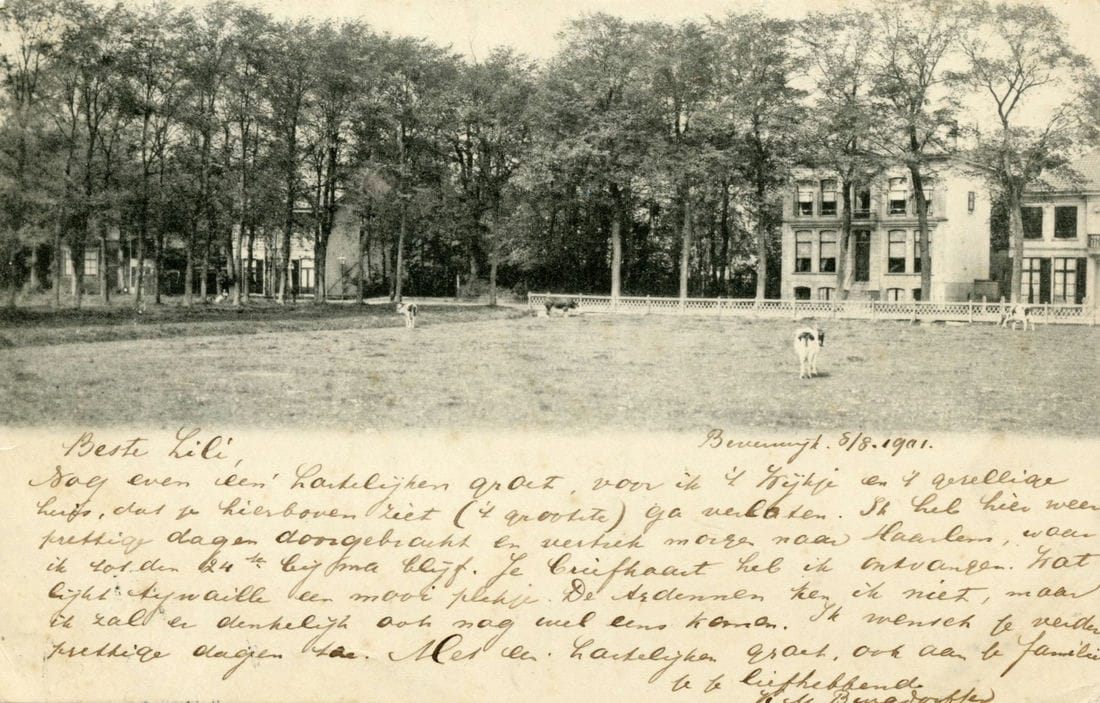 Beste Lili,
Beverwijk. 8/8. 1901.
Nog even een hartelijken groet, voor ik 't Wijkje en 't gezellige
huis, dat je hierboven ziet ('t grootste) ga verlaten. Ik heb hier weer
prettige dagen doorgebracht en vertrek morgen naar Haarlem, waar
ik tot den 24ste bij ma blijf. Je briefkaart heb ik ontvangen. Wat
lijkt Aywaille een mooi plekje. De Ardennen ken ik niet, maar
ik zal er denkelijk ook nog wel eens komen. Ik wensch je verder
prettige dagen toe. Met een hartelijken groet, ook aan je familie
je je liefhebbende